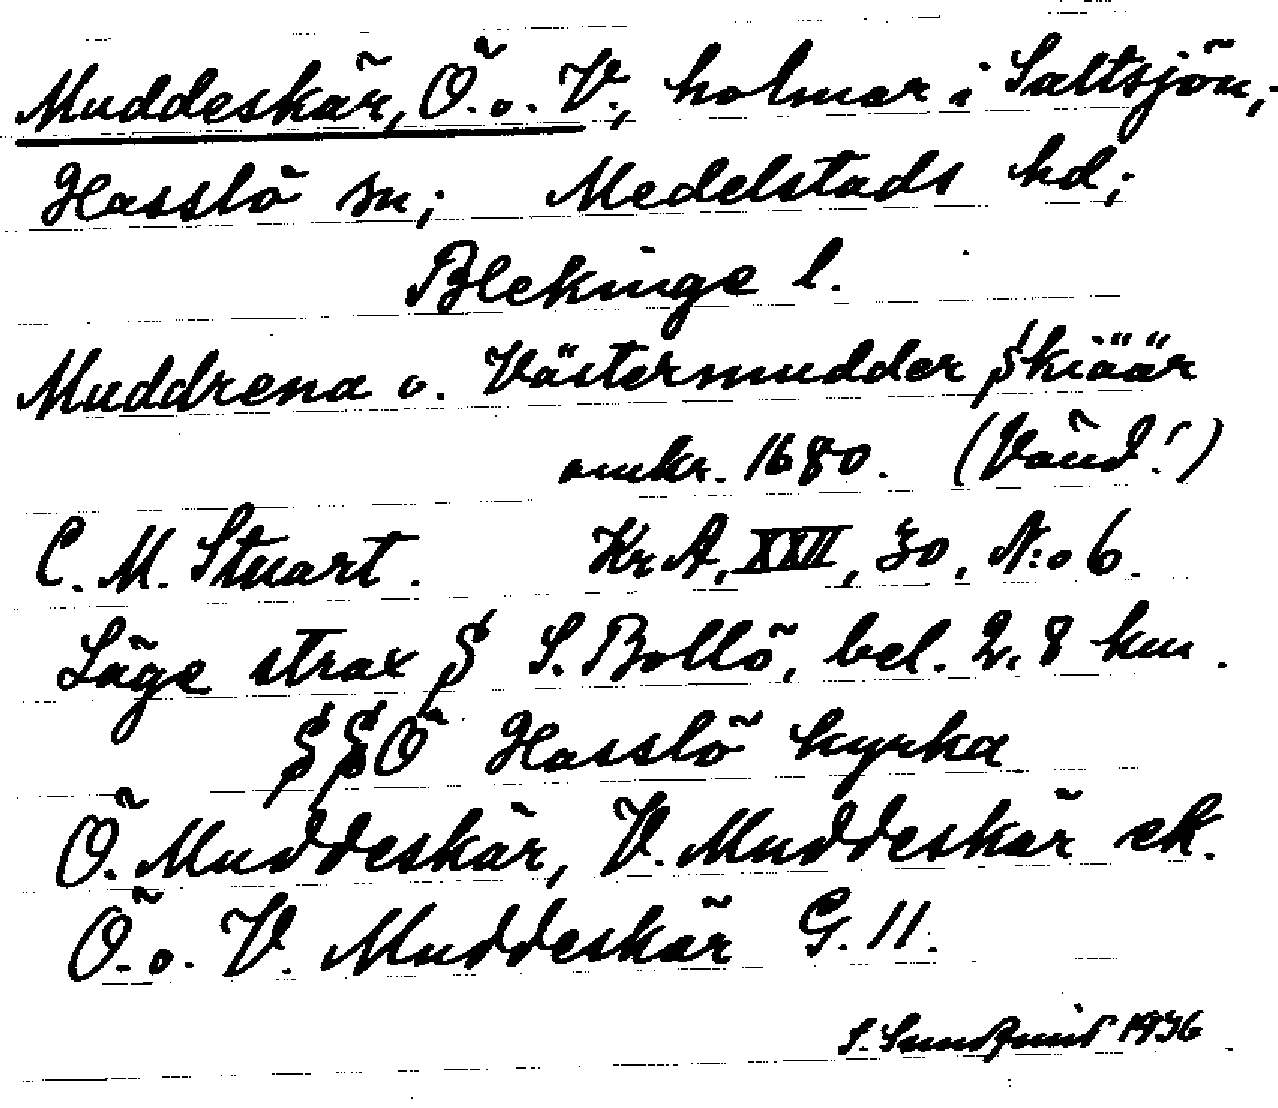 Muddeskär, Ö. o. V., holmar i Saltsjön,
Hasslö sn; Medelstads hd;
Blekinge l.
Muddrena o. Västermudder Skiäär
omkr. 1680. (Vänd!)
C. M. Stuart. Kr A, XXII, 30, N:o 6.
Läge strax S S. Bollö, bel. 2.8 km.
SSÖ Hasslö kyrka
Ö. Muddeskär, V. Muddeskär ek.
Ö. o. V. Muddeskär G. 11.
S. 1936